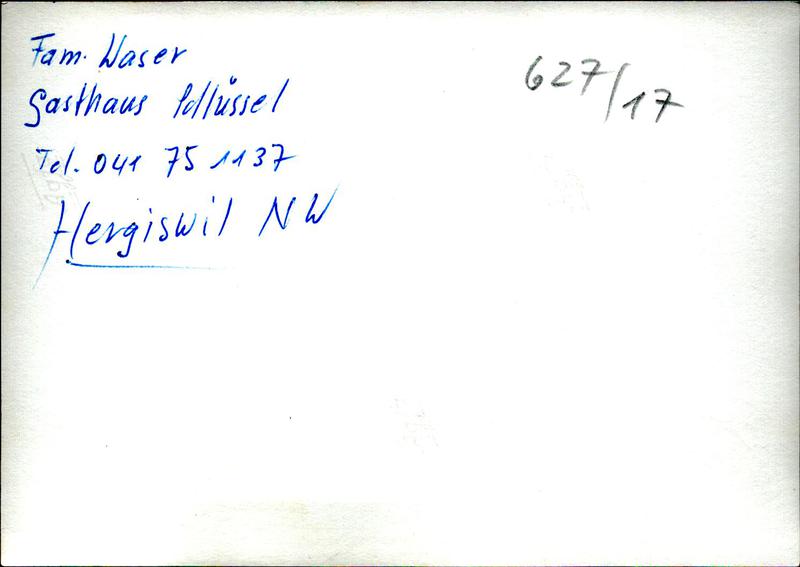 Fam. Waser
Gasthaus Schlüssel
Tel. 041 75 11 37
Hergiswil NW
627/17